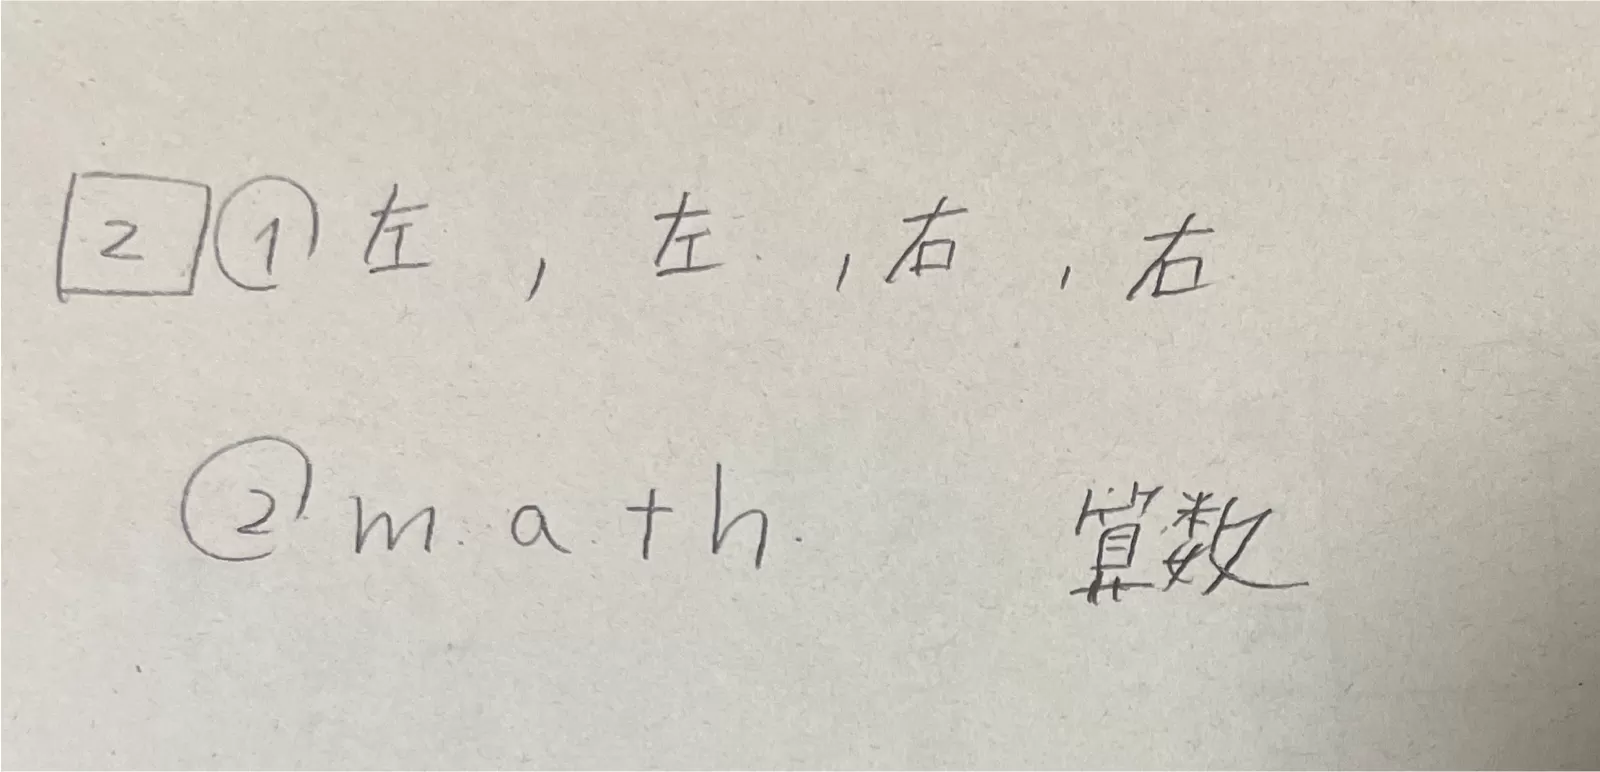 2 ① 左 , 左 , 右 , 右
② m a t h 算数